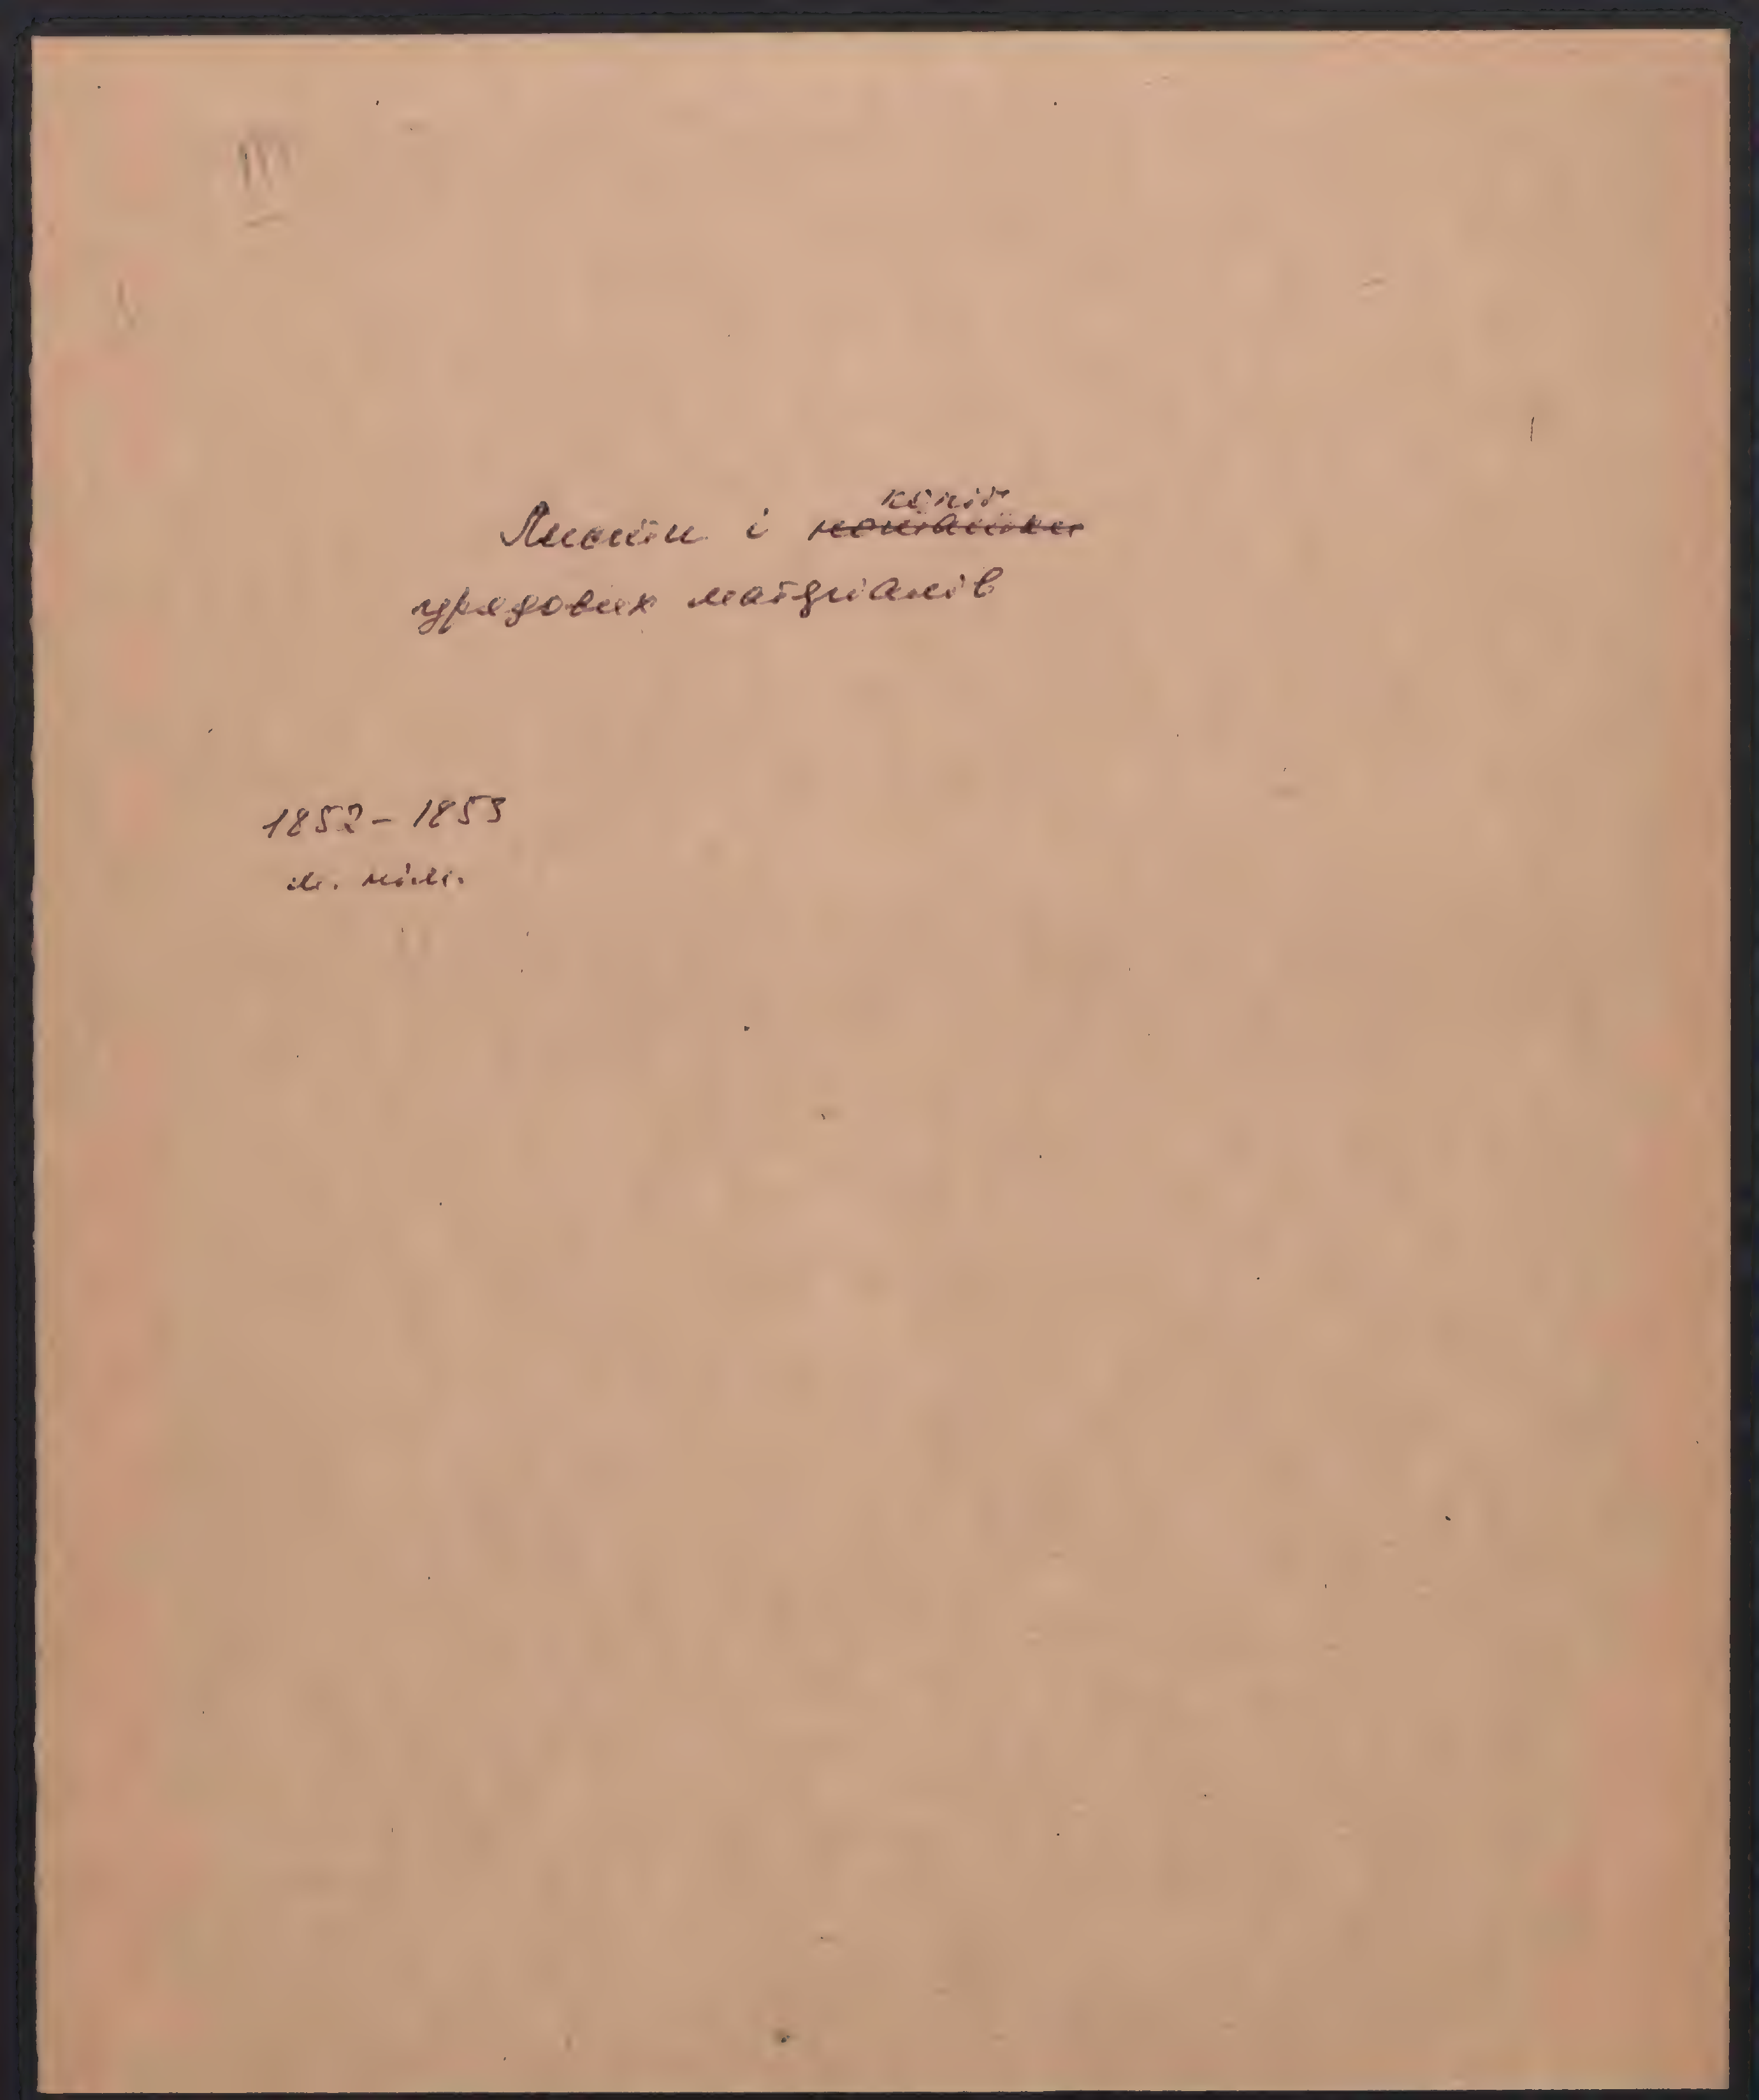 Листи і копії
урядових матеріалів
1852-1853
м. нім.